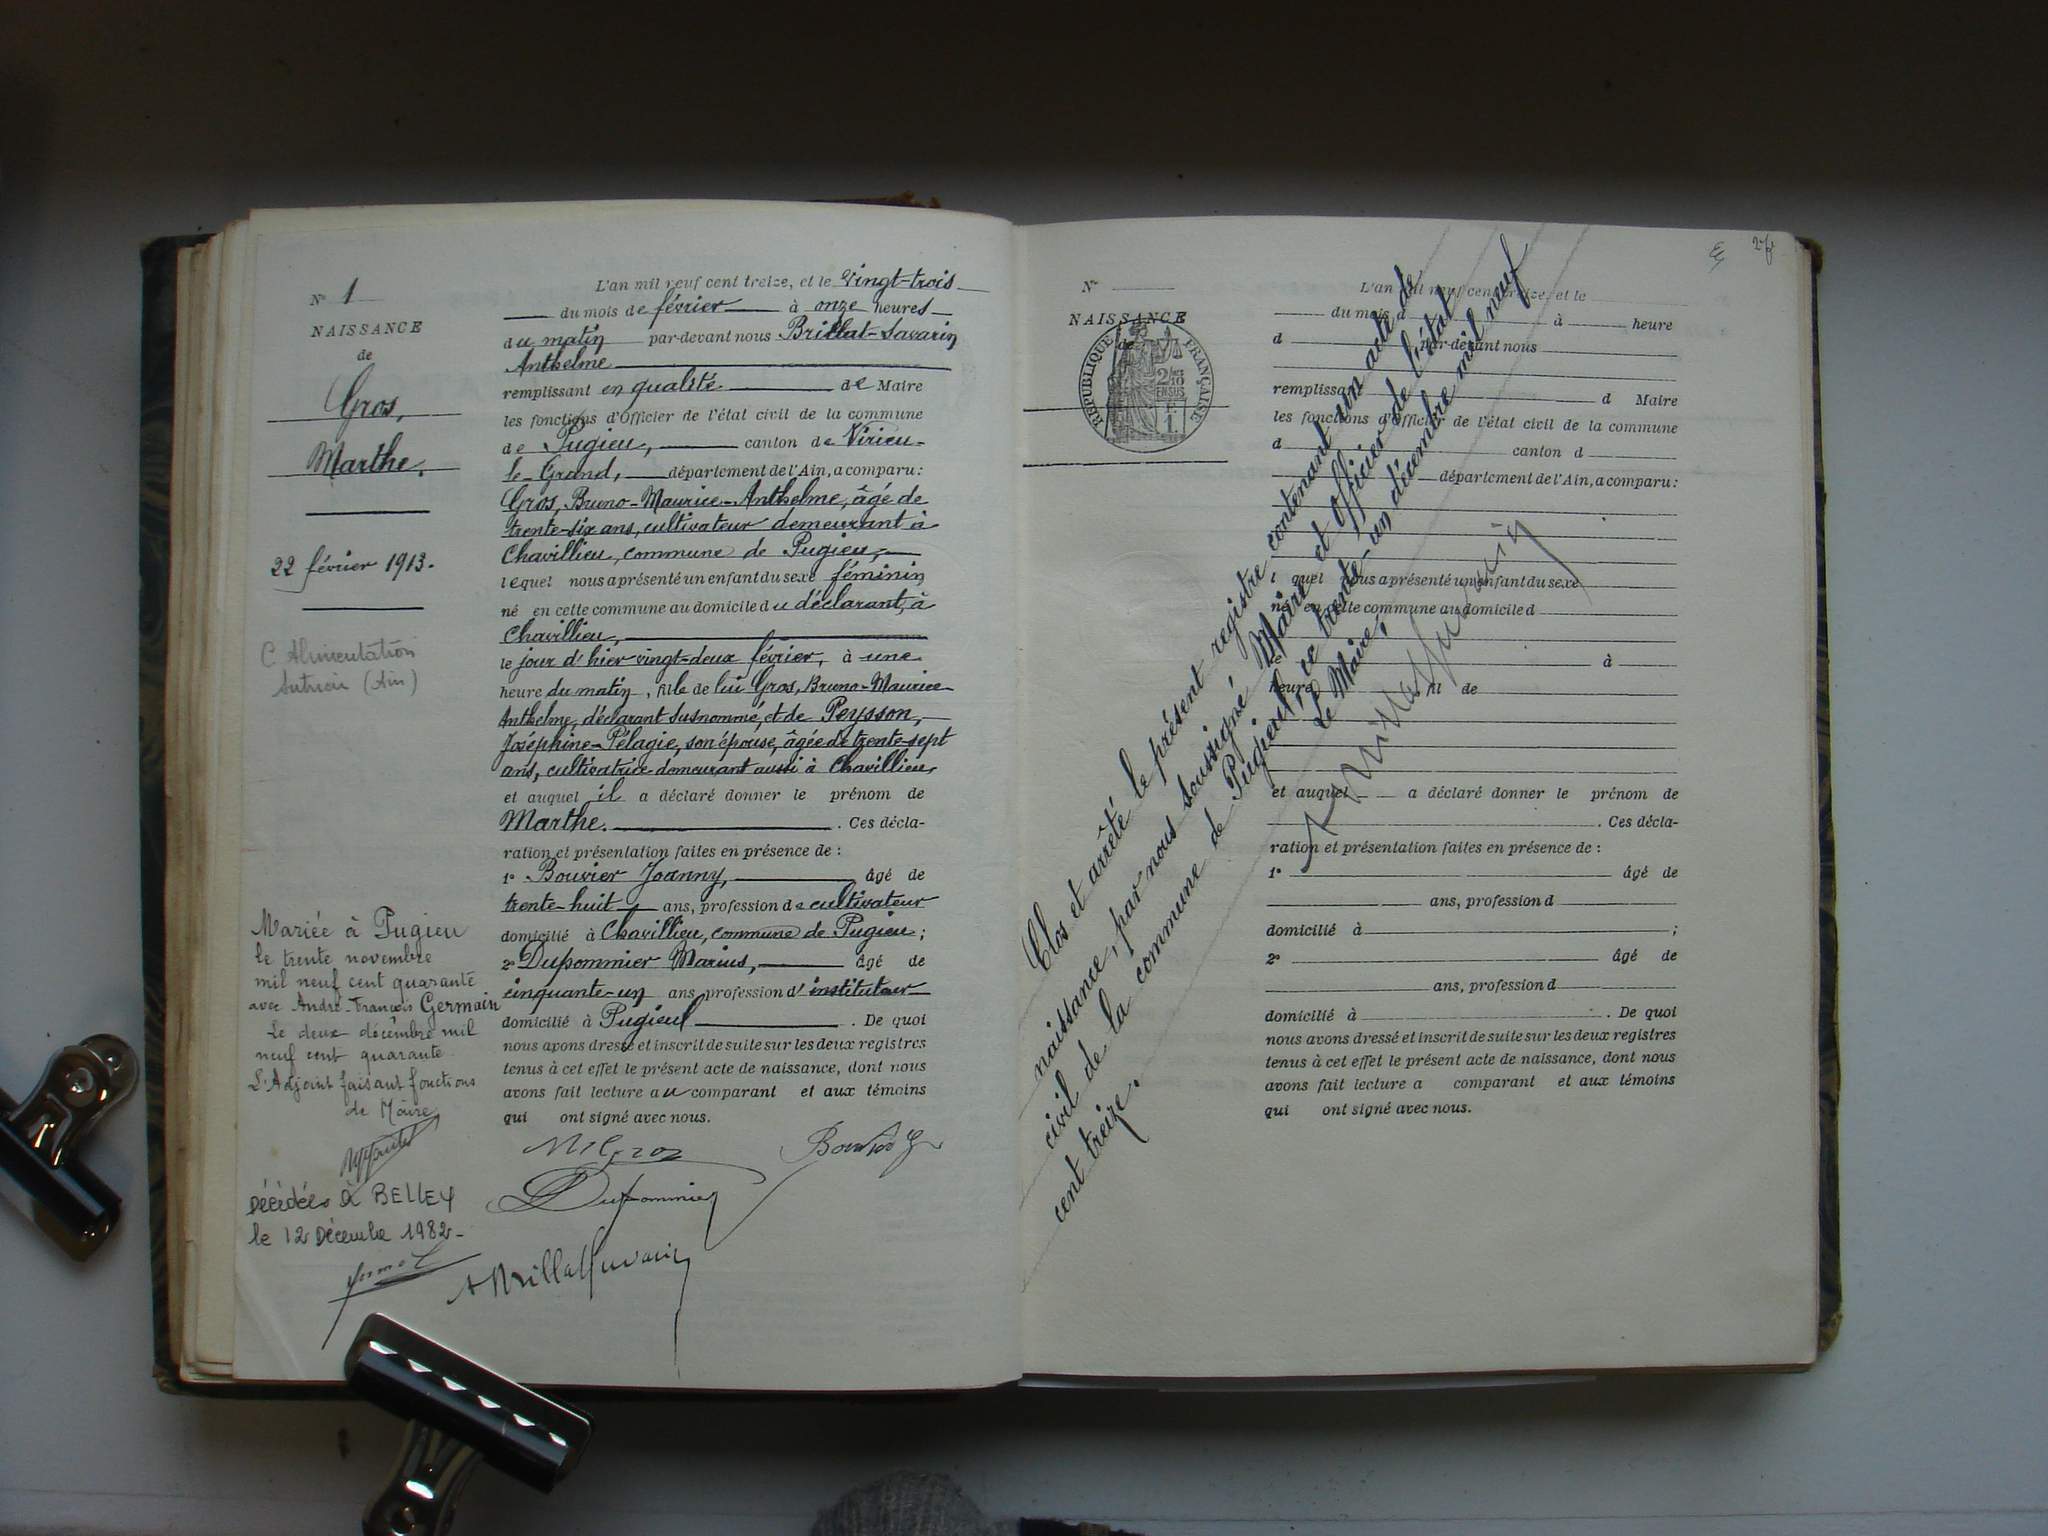 N° 1
NAISSANCE
de
Gros,
Marthe.
22 février 1913.
C. Alimentation
(Ain)
Mariée à Pugieu
le trente novembre
mil neuf cent quarante
avec André-François Germain
Le deux décembre mil
neuf cent quarante
L'Adjoint faisant fonctions
de Maire
Décédée à BELLEY
le 12 Décembre 1982-
L'an mil neuf cent treize, et le vingt-trois
du mois de février à onze heures
du matin par-devant nous Brillat-Savarin
Anthelme
remplissant en qualité de Maire
les fonctions d'Officier de l'état civil de la commune
de Pugieu, canton de Virieu-
le-Grand, département de l'Ain, a comparu :
Gros, Bruno-Maurice-Anthelme, âgé de
trente-six ans, cultivateur demeurant à
Chavillieu, commune de Pugieu,
lequel nous a présenté un enfant du sexe féminin
né en cette commune au domicile du déclarant, à
Chavillieu,
le jour d'hier vingt-deux février, à une
heure du matin, fille de lui Gros, Bruno-Maurice-
Anthelme, déclarant susnommé, et de Peysson,
Joséphine-Pélagie, son épouse, âgée de trente-sept
ans, cultivatrice demeurant aussi à Chavillieu,
et auquel il a déclaré donner le prénom de
Marthe. . Ces décla-
ration et présentation faites en présence de :
1° Bouvier Joanny, âgé de
trente-huit ans, profession de cultivateur
domicilié à Chavillieu, commune de Pugieu ;
2° Dupommier Marius, âgé de
cinquante-un ans, profession d'instituteur
domicilié à Pugieu . De quoi
nous avons dressé et inscrit de suite sur les deux registres
tenus à cet effet le présent acte de naissance, dont nous
avons fait lecture au comparant et aux témoins
qui ont signé avec nous.
M Gros
Bouvier J
Dupommier
A Brillat Savarin
N°
NAISSANCE
de
RÉPUBLIQUE FRANÇAISE
2/10
EN SUS
1 F.
L'an mil neuf cent treize, et le
du mois d à heure
d par-devant nous
remplissant d Maire
les fonctions d'Officier de l'état civil de la commune
d canton d
département de l'Ain, a comparu :
l quel nous a présenté un enfant du sexe
né en cette commune au domicile d
le à
heure fil de
et auquel a déclaré donner le prénom de
. Ces décla-
ration et présentation faites en présence de :
1° âgé de
ans, profession d
domicilié à ;
2° âgé de
ans, profession d
domicilié à . De quoi
nous avons dressé et inscrit de suite sur les deux registres
tenus à cet effet le présent acte de naissance, dont nous
avons fait lecture a comparant et aux témoins
qui ont signé avec nous.
Clos et arrêté le présent registre contenant un acte de
naissance, par nous soussigné Maire et Officier de l'état
civil de la commune de Pugieu, ce trente-un décembre mil neuf
cent treize.
Le Maire,
A Brillat Savarin